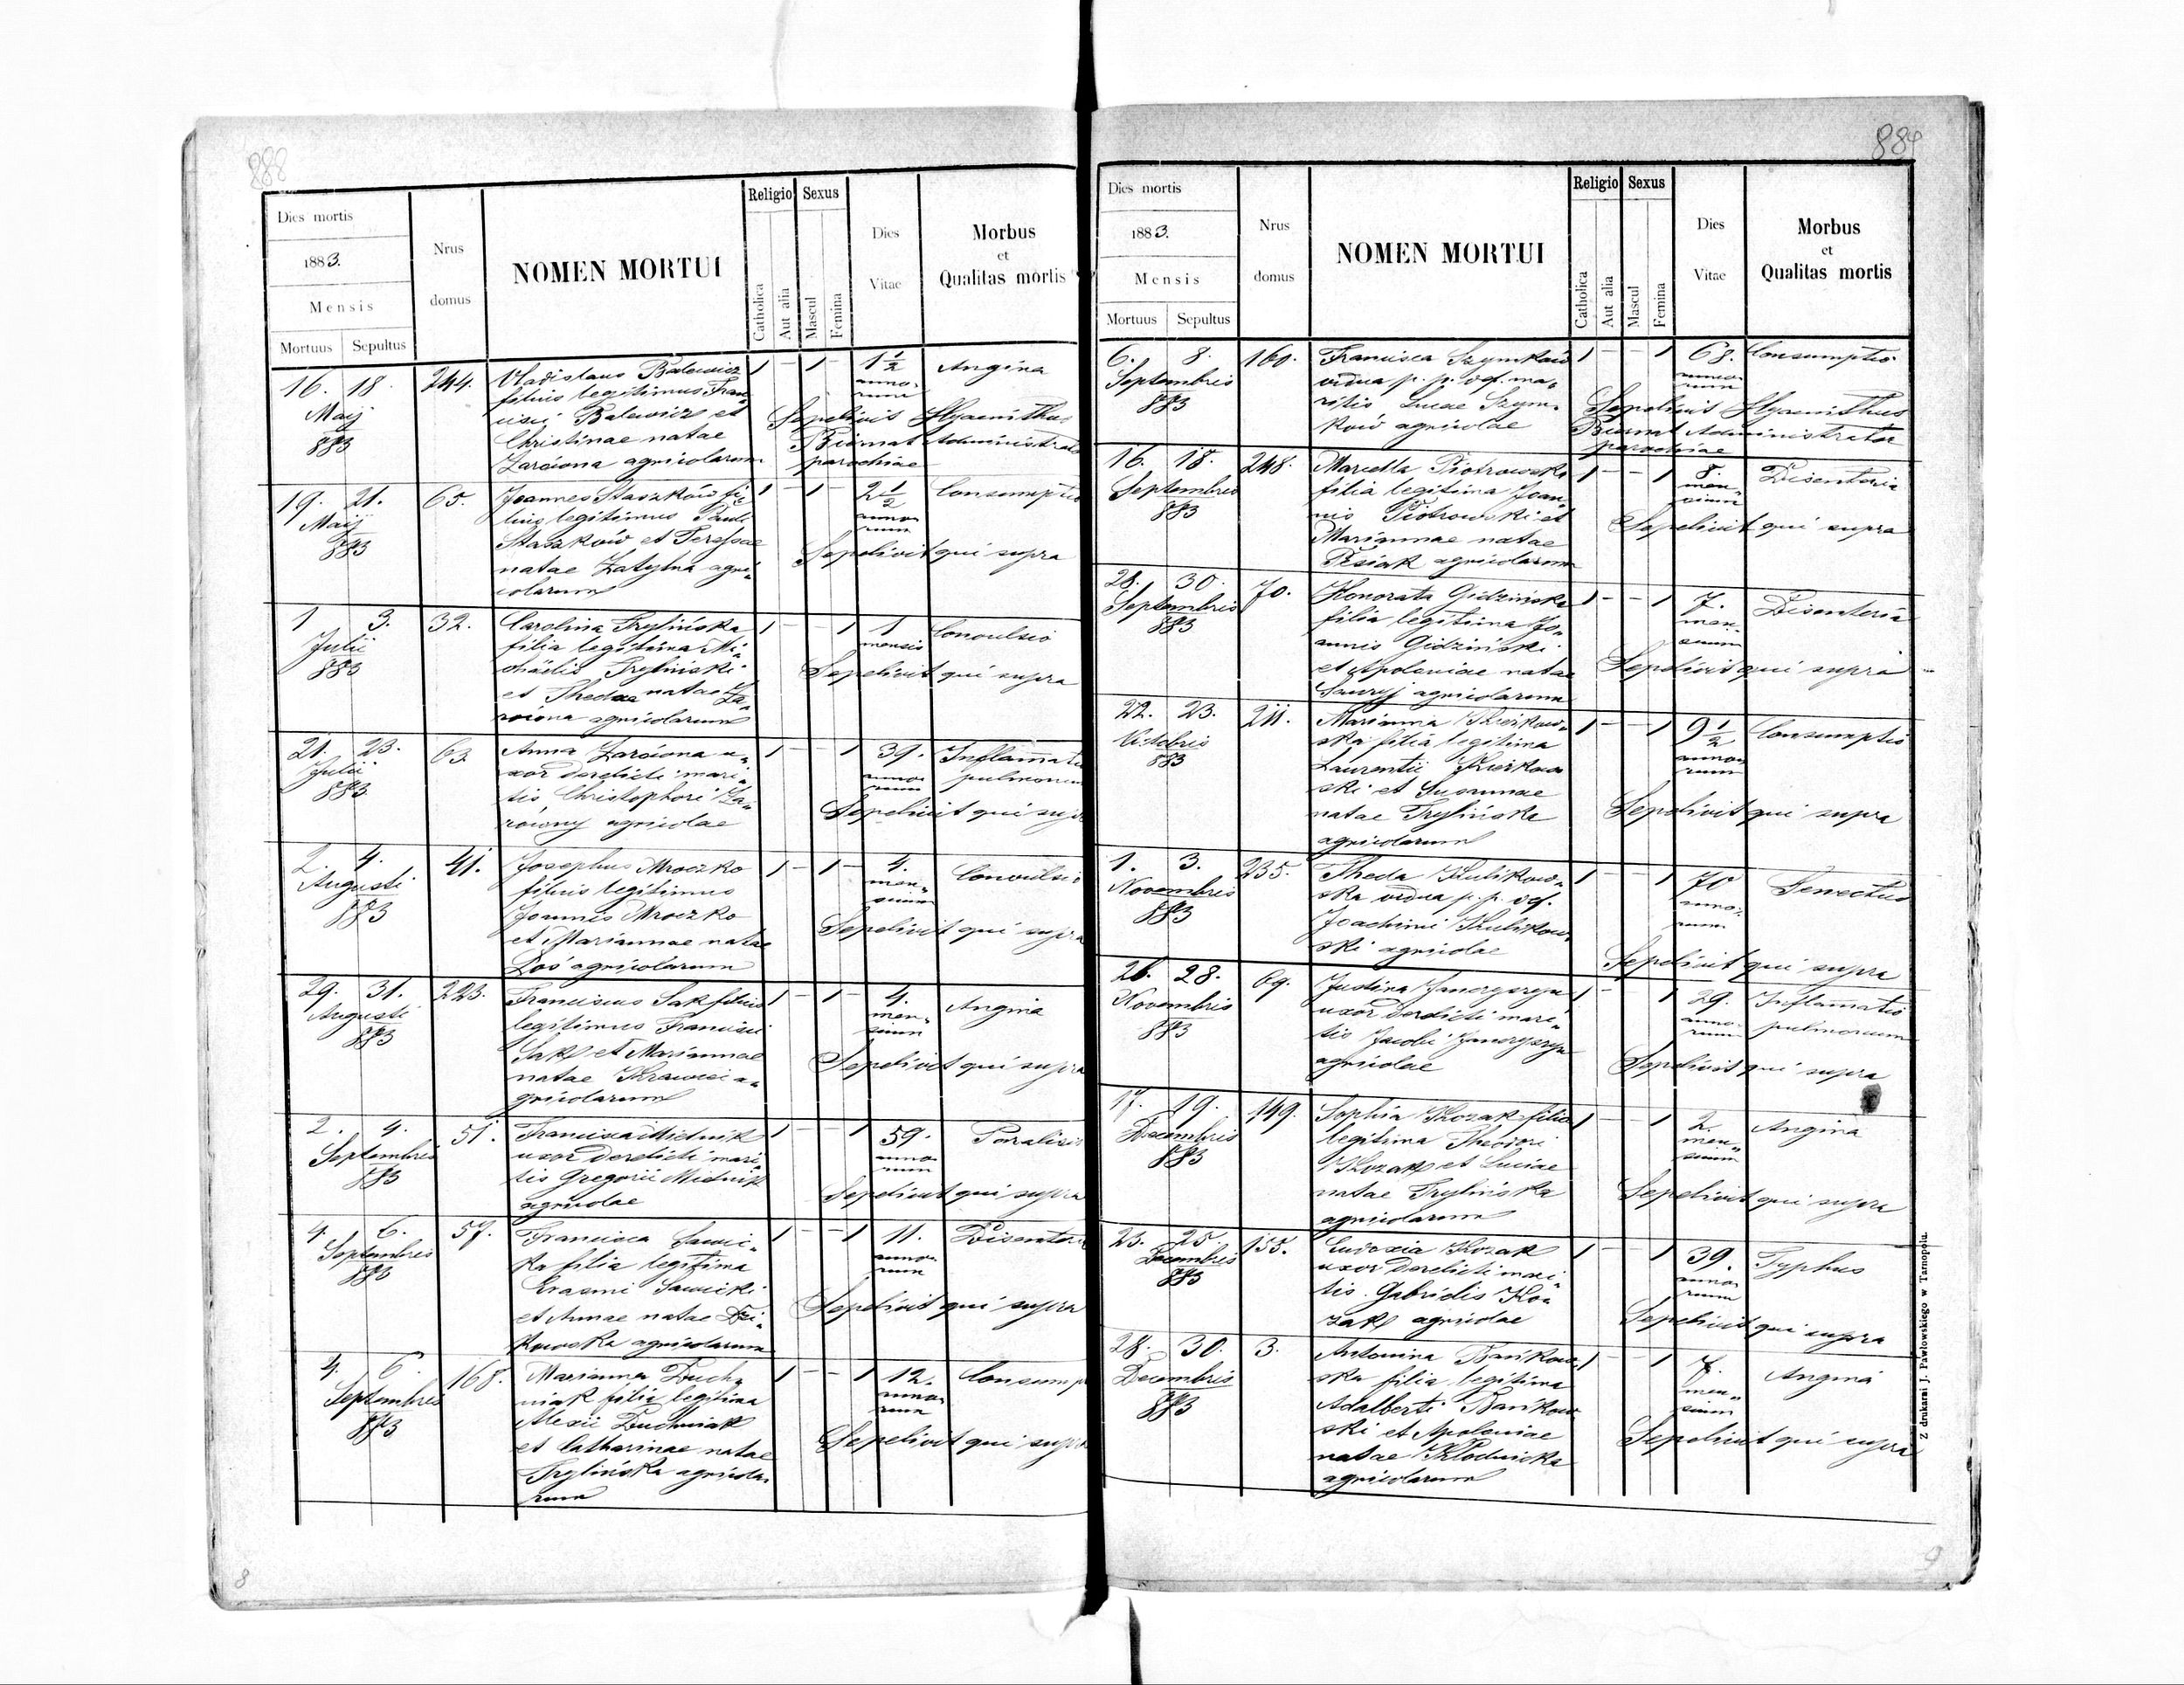 888
Dies mortis
1883.
Mensis
Mortuus Sepultus
Nrus
domus
NOMEN MORTUI
Religio
Catholica
Aut alia
Sexus
Mascul
Femina
Dies
Vitae
Morbus
et
Qualitas mortis
16. 18. 244. Vladislaus Balewicz 1 — 1 1 1/2 Angina
Maij filius legitimus Fran- anno-
883 cisci Balewicz et rum
Christinae natae Sepelivit Hyacinthus
Zarowna agricolarum Biernat Administrator
parochiae
19. 21. 65. Joannes Staszków fi- 1 — 1 2 1/2 Consumptio
Maij lius legitimus Pauli anno-
883 Staszków et Teressae rum
natae agri- Sepelivit qui supra
colarum
1 3. 32. Carolina Trylińska 1 — — 1 1 Convulsio
Julii filia legitima Mi- mensis
883 chaelis Tryliński Sepelivit qui supra
et Thedae natae Za-
rowna agricolarum
21. 23. 63. Anna Zarowna u- 1 — 1 39. Inflamatio
Julii xor derelicti mari- anno- pulmonum
883 tis Christophori Za- rum
rowny agricolae Sepelivit qui supra
2. 4. 41. Josephus Mroczko 1 — 1 — 4. Convulsio
Augusti filius legitimus men-
883 Joannis Mroczko sium
et Mariannae natae Sepelivit qui supra
Łoś agricolarum
29. 31. 223. Franciscus Sak filius 1 — 1 — 4. Angina
Augusti legitimus Francisci men-
883 Sak et Mariannae sium
natae Krawiec a- Sepelivit qui supra
gricolarum
2. 4. 51. Francisca Mielnik 1 — 1 59. Paralisis
Septembris uxor derelicti mari- anno-
883 tis Gregorii Mielnik rum
agricolae Sepelivit qui supra
4. 6. 57. Francisca Sawic- 1 — — 1 11. Disenteria
Septembris ka filia legitima anno-
883 Erasmi Sawicki rum
et Annae natae Sepelivit qui supra
agricolarum
4. 6. 168. Marianna Duch- 1 — — 1 12. Consumptio
Septembris niak filia legitima anno-
883 Alexii Duchniak rum
et Catharinae natae Sepelivit qui supra
Trylińska agricola-
rum
8
889
Dies mortis
1883.
Mensis
Mortuus Sepultus
Nrus
domus
NOMEN MORTUI
Religio
Catholica
Aut alia
Sexus
Mascul
Femina
Dies
Vitae
Morbus
et
Qualitas mortis
6. 8. 160. Francisca Szymków 1 — — 1 68. Consumptio
Septembris vidua p. p. def. ma- anno-
883 ritis Lucae Szym- rum
ków agricolae Sepelivit Hyacinthus
Biernat Administrator
parochiae
16. 18. 248. Marcella Piotrowska 1 — — 1 8. Disenteria
Septembris filia legitima Joan- men-
883 nis Piotrowski et sium
Mariannae natae Sepelivit qui supra
agricolarum
28. 30. 70. Honorata Gidzińska 1 — — 1 7. Disenteria
Septembris filia legitima Jo- men-
883 annis Gidziński sium
et Apoloniae natae Sepelivit qui supra
agricolarum
22. 23. 211. Marianna 1 — — 1 9 1/2 Consumptio
Octobris ska filia legitima anno-
883 Laurentii rum
ski et Susannae Sepelivit qui supra
natae Trylińska
agricolarum
1. 3. 235. Theda Kulikow- 1 — — 1 70 Senectus
Novembris ska vidua p. p. def. anno-
883 Joachimi Kulikow- rum
ski agricolae Sepelivit qui supra
26. 28. 69. Justina Janczyszyn 1 — — 1 29. Inflamatio
Novembris uxor derelicti mari- anno- pulmonum
883 tis Jacobi Janczyszyn rum
agricolae Sepelivit qui supra
17. 19. 149. Sophia Kozak filia 1 — — 1 2. Angina
Decembris legitima Theodori men-
883 Kozak et Luciae sium
natae Trylińska Sepelivit qui supra
agricolarum
23. 25. 155. Eudoxia Kozak 1 — 1 39. Typhus
Decembris uxor derelicti mari- anno-
883 tis Gabrielis Ko- rum
zak agricolae Sepelivit qui supra
28. 30. 3. Antonina Bańkow- 1 — — 1 7. Angina
Decembris ska filia legitima men-
883 Adalberti Bańkow- sium
ski et Apoloniae Sepelivit qui supra
natae Kłodnicka
agricolarum
Z drukarni J. Pawłowskiego w Tarnopolu.
9